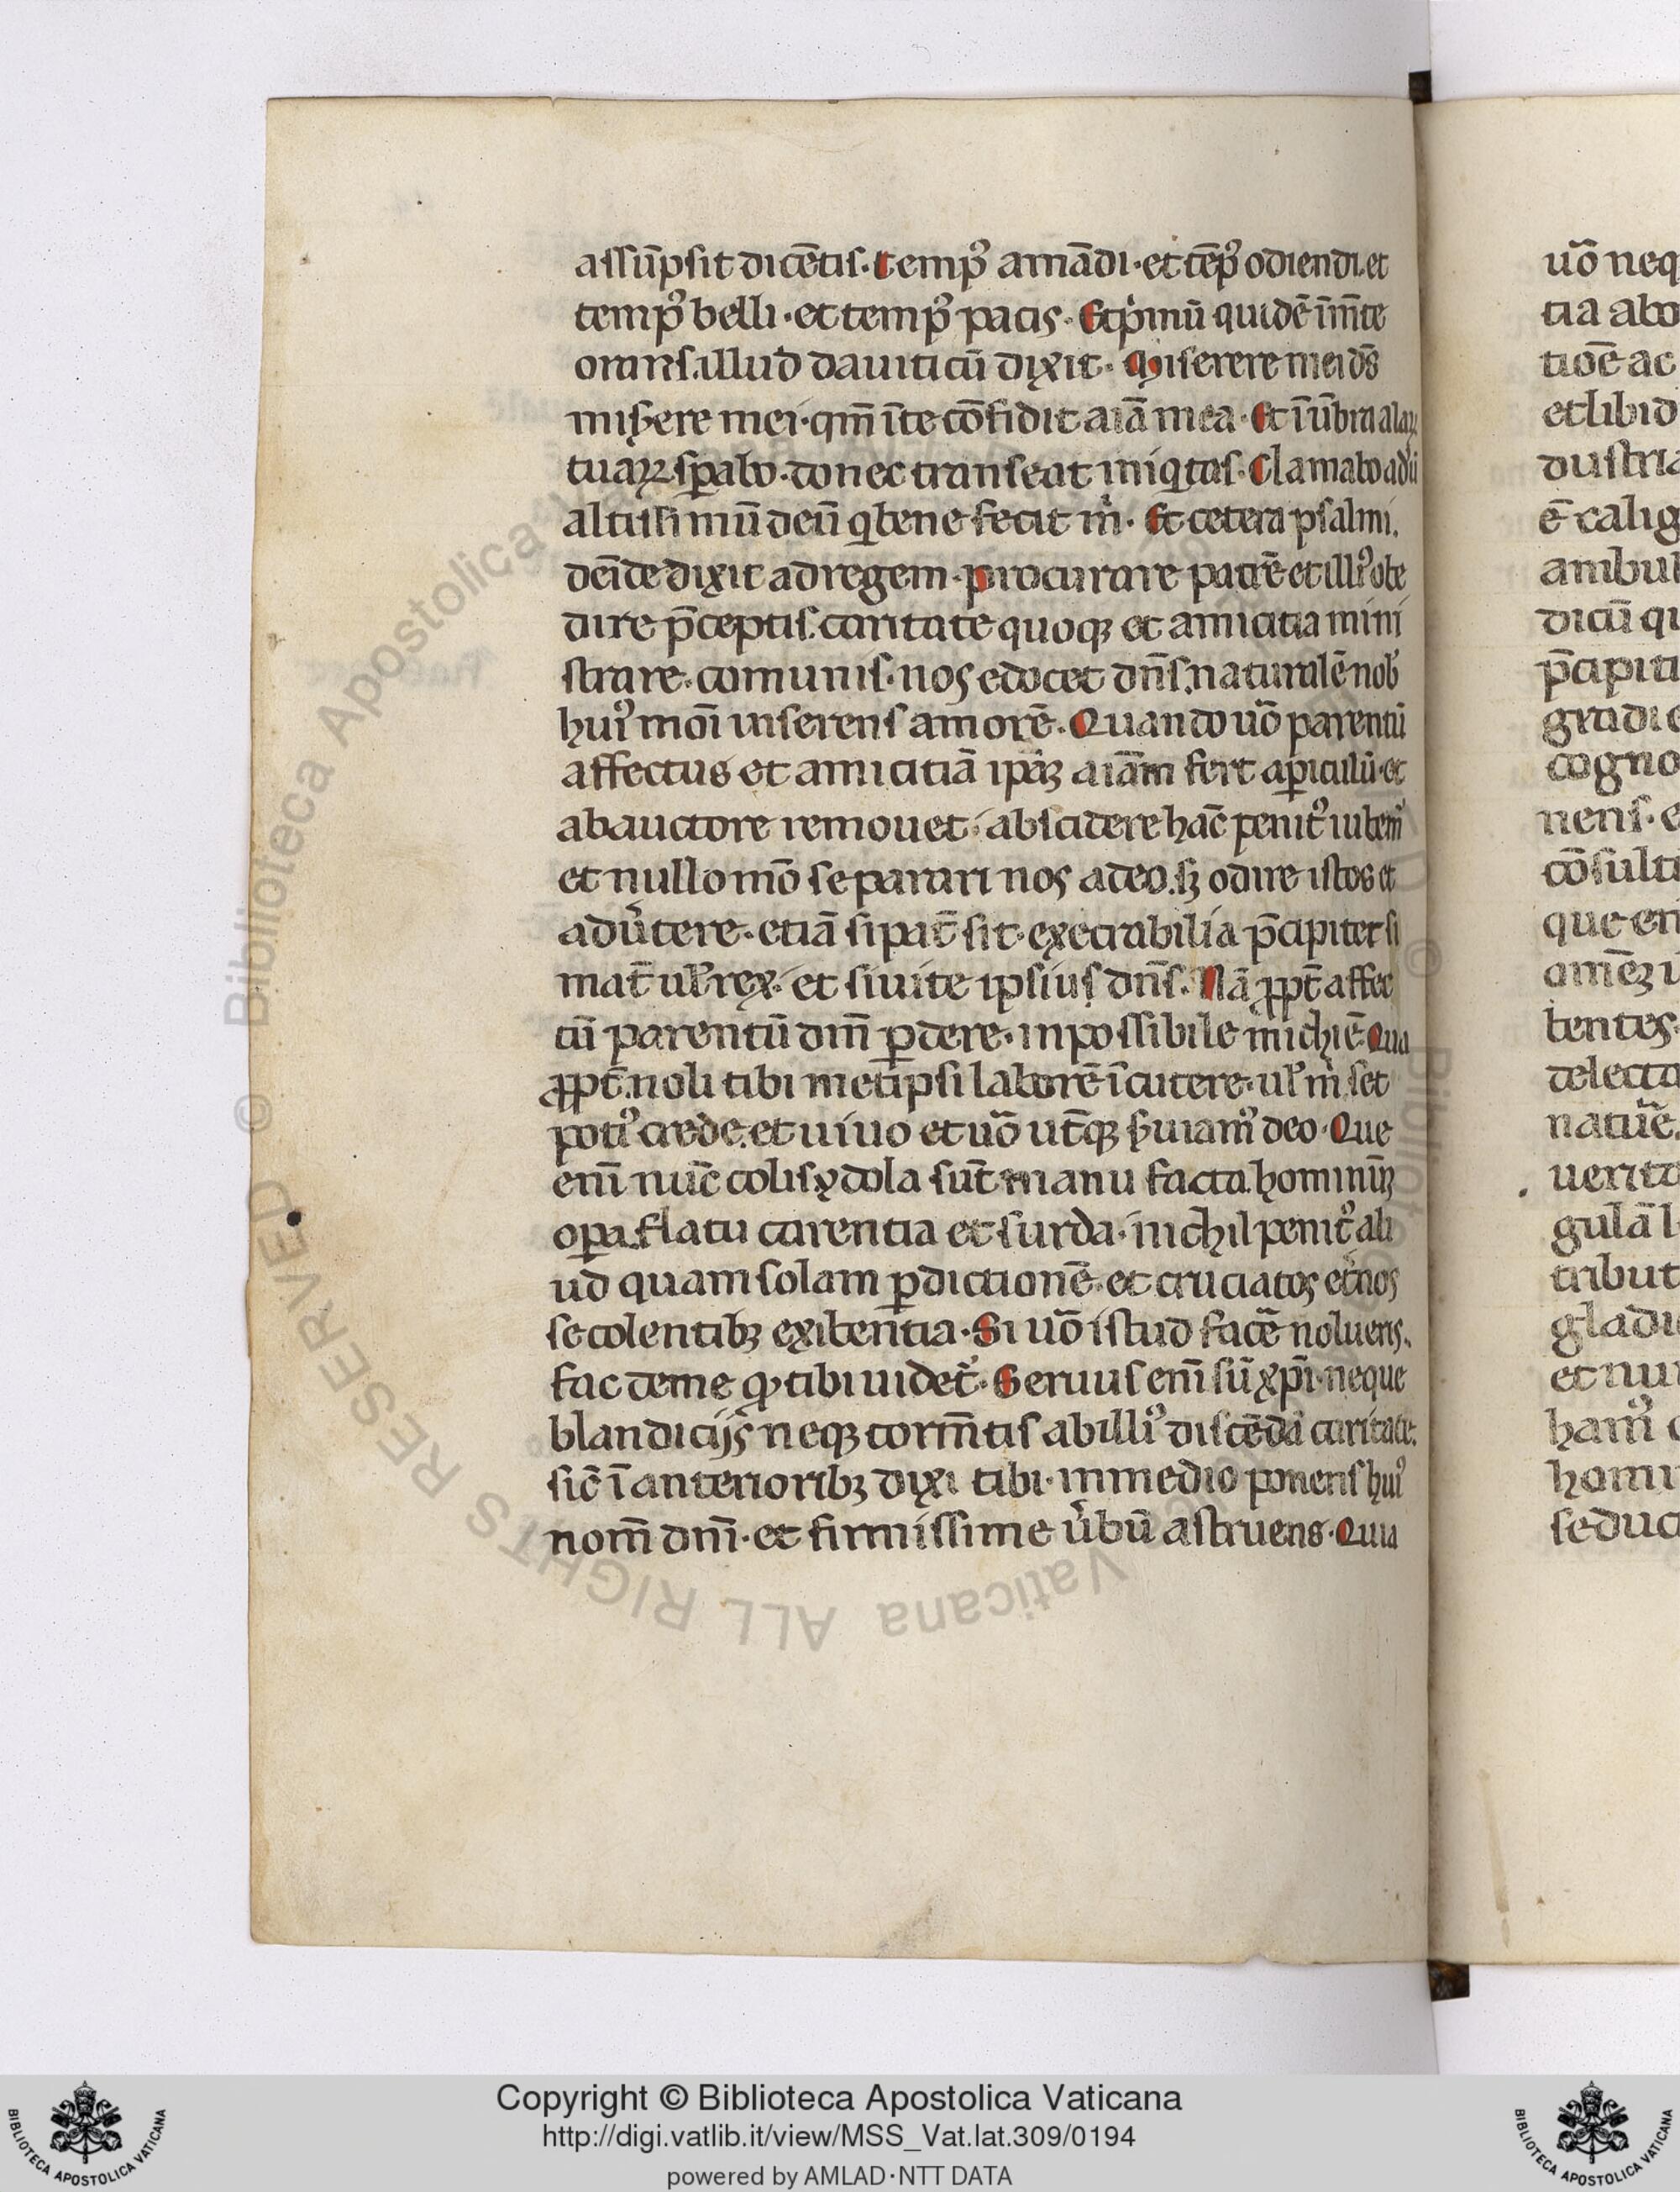 assu̅psit dice̅tis. tempꝰ ama̅di · et te̅pꝰ odiendi. et
tempꝰ belli · et tempꝰ pacis · Et pͥmu̅ quide̅ i̅ m̅te
orans. illud dauiticu̅ dixit · Miserere mei ds̅
mis̾ere mei · qm̅ i̅ te co̅fidit aia̅ mea · Et i̅ u̅bra alaꝝ
tuaꝝ sꝑabo · donec transeat iniqͥtas · Clamabo ad du̅
altissimu̅ deu̅ qͥ bene fecit mͥ · Et cetera psalmi.
dei̅de dixit ad regem · procurare patre̅ et illiꝰ obe
dire p̅ceptis. caritate quoqꝫ et amicitia mini
strare. comunis. nos edocet dn̅s. naturale̅ nob̾
huiꝰ moi̅ inserens amore̅. Quando uo̅ parentu̅
affectus et amicitia̅ ipaꝫ aia̅m fert a ꝑiculu̅ · et
ab auctore remouet · abscidere ha̅c penitꝰ iubem̾
et nullo mo̅ separari nos a deo. sꝫ odire istos et
adu̾tere · etia̅ si pat̅ sit · execrabilia p̅cipiter si
mat̅ ul̾ rex · et si uite ipsius dn̅s. Na̅ ꝓpt̅ affec
tu̅ parentu̅ dm̅ ꝑdere · inpossibile michi e̅. Qua
ꝓpt̅. noli tibi metipsi labore̅ i̅cutere · ul̾ mͥ. set
potiꝰ crede. et uiuo et uo̅ ut̅qꝫ s̾uiamꝰ deo · Que
eni̅ nu̅c colis ydola su̅t manu facta hominu̅ꝫ
oꝑa. flatu carentia et surda · nichil penitꝰ ali
ud quam solam ꝑdictione̅. et cruciatos et̾nos
se colentibꝫ exibentia · Si uo̅ istud fac̅e nolueris.
fac de me qͦ tibi uidet̾. Seruus eni̅ su̅ xpi̅ · neque
blandicijs neqꝫ torm̅tis ab illiꝰ disce̅da̅ caritate.
sic̅ i̅ anterioribꝫ dixi tibi · in medio ponens huiꝰ
nom̅ dni̅ · et firmissime u̾bu̅ astruens · Quia
uo̅ neq
tia abo
tio̅e ac
et libid
dustria
e̅ calig
ambul
dicu̅ qu
p̅cipiti
gradie
cogno
nens · e
co̅sulta
que en
om̅eꝫ i
bentes
delecta
natur̅e
uerita
gula̅ l
tribut
gladi
et nu
ham̾
homi
seduc
© Biblioteca Apostolica Vaticana ALL RIGHTS RESERVED
Copyright © Biblioteca Apostolica Vaticana
http://digi.vatlib.it/view/MSS_Vat.lat.309/0194
powered by AMLAD·NTT DATA
BIBLIOTECA APOSTOLICA VATICANA
BIBLIOTECA APOSTOLICA VATICANA